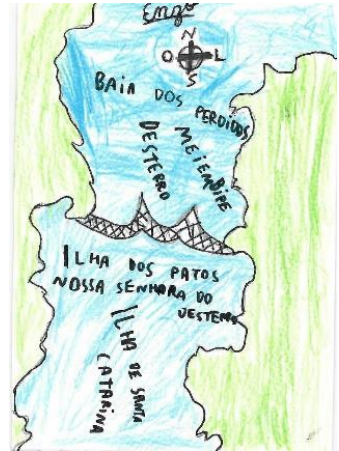 Enzo
N
O L
S
BAIA DOS PERDIDOS
MEIEMBIPE
DESTERRO
ILHA DOS PATOS
NOSSA SENHORA DO
DESTERRO
ILHA DE SANTA
CATARINA